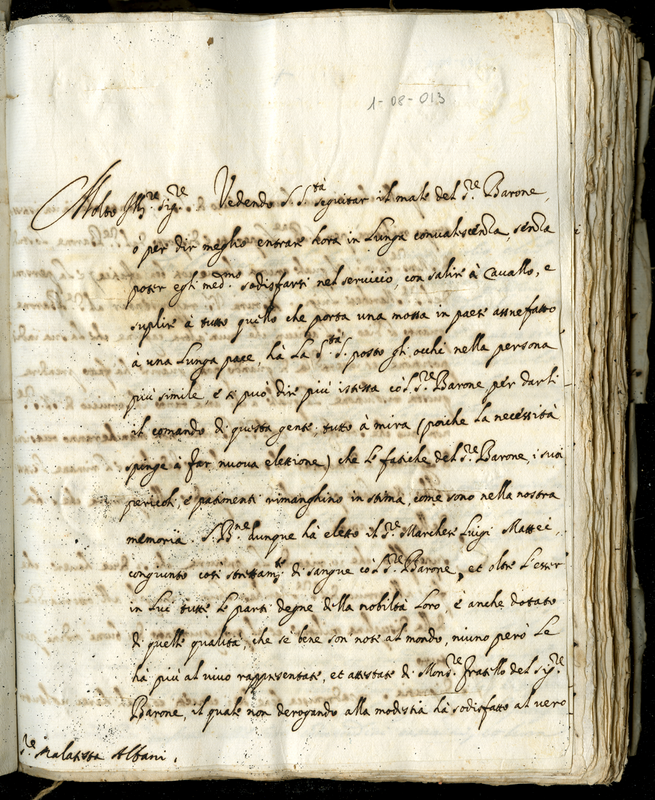 1-08-013
Molto Ill.re Sig.re Vedendo S. S.tà seguitar il male del S.re Barone,
o per dir meglio entrare hora in lunga convalescenza, senza
poter egli med.mo sodisfarsi nel servicio, con salire à Cavallo, e
suplire à tutto quello che porta una mossa in paese assuefatto
à una lunga pace, hà La S.tà S. posto gli occhi nella persona
più simile, e si può dire più istessa col S.re Barone per darli
il comando di questa gente, tutto à mira (poiche la necessità
spinge à far nuova elettione) che le fatiche del S.re Barone, i suoi
pericoli, e patimenti rimanghino in stima, come sono nella nostra
memoria. S. B.ne dunque hà eletto il S.re Marchese Luigi Mattei,
congiunto così strettam.te di sangue col S.re Barone, et oltre l'esser
in lui tutte le parti degne della nobiltà loro, è anche dotato
di quelle qualità, che se bene son note al mondo, niuno però le
hà più al vivo rappresentate, et attestate di Mons.re fratello del Sig.re
Barone, il quale non derogando alla modestia hà sodisfatto al vero
S.re Malatesta Albani.